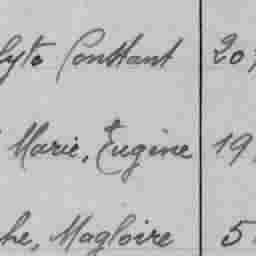 lyte Constant 20
Marie, Eugène 19
che, Magloire 5